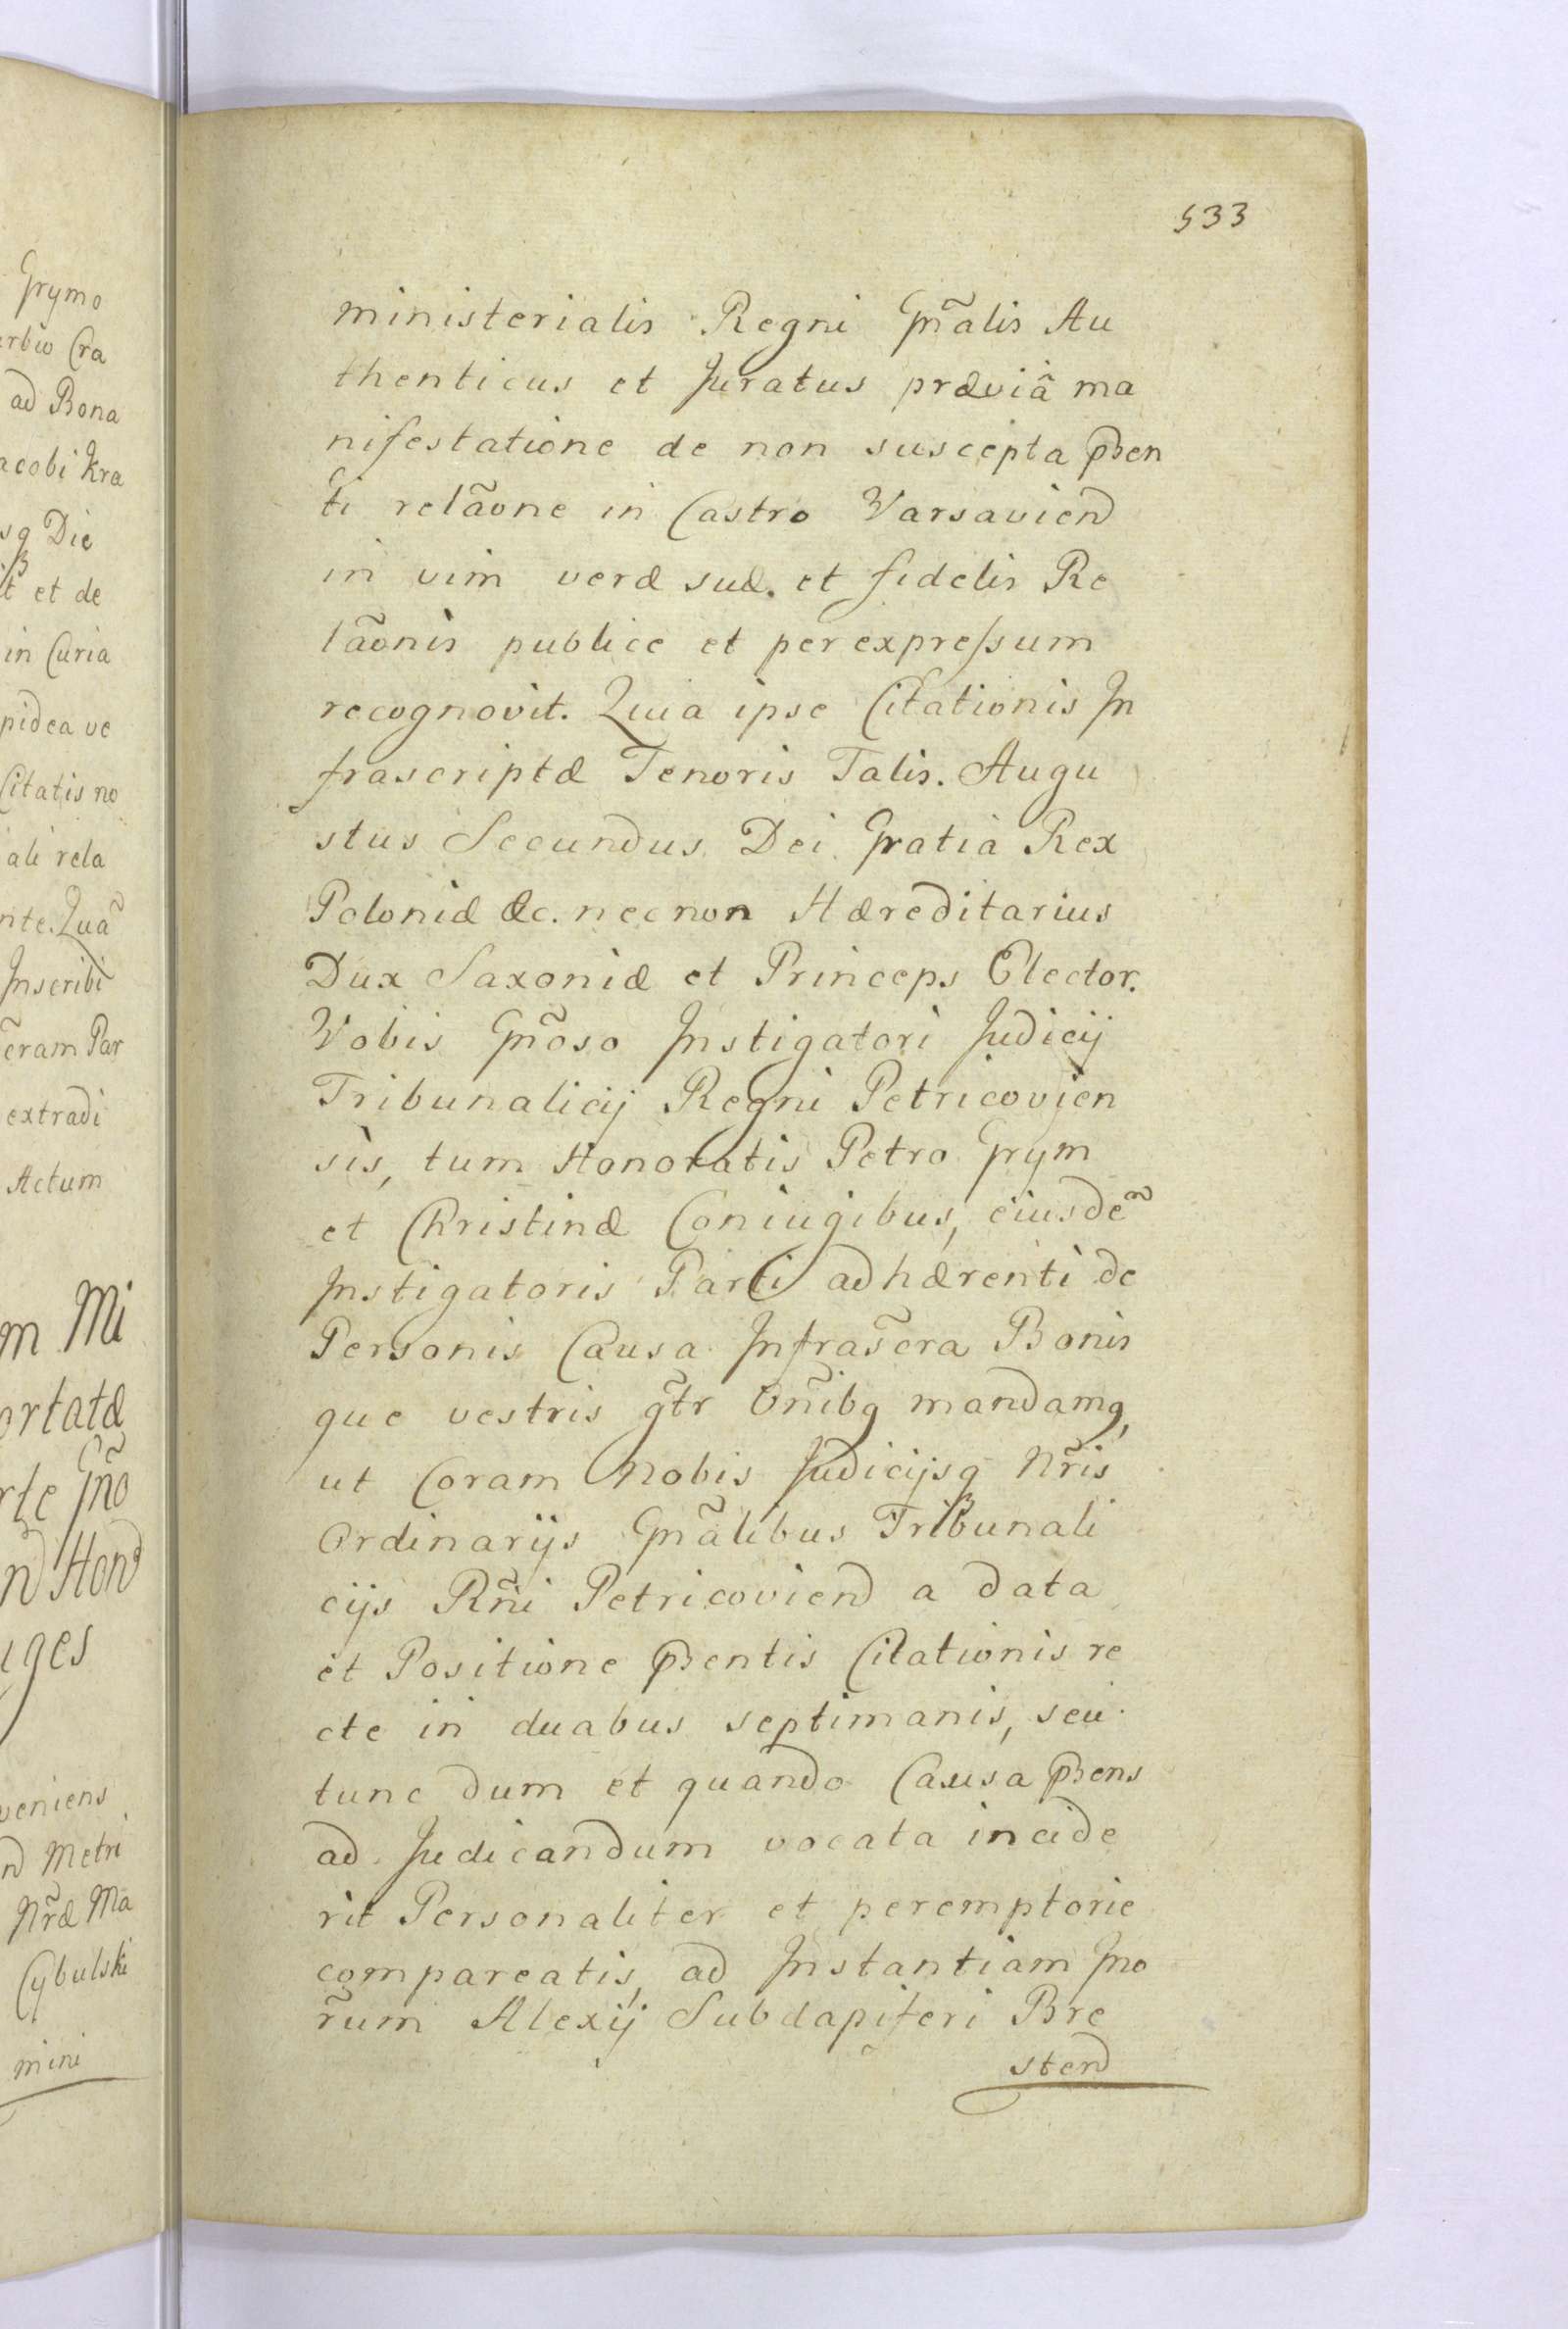 Grymo
erbio Cra
ad Bona
acobi Kra
sq Die
it et de
in Curia
pidea ve
Citatis no
iali rela
nte. Quã
Inscribi
c̃eram Par
extradi
Actum
m Mi
ortatæ
rte Gño
Hond
uges
veniens
nd Metri
Nr̃æ Ma
Cybulski
mini
533
ministerialis Regni Gñalis Au
thenticus et Juratus præviâ ma
nifestatione de non suscepta pñen
ti relãone in Castro Varsaviend
in vim veræ suæ. et fidelis Re
lãonis publice et per expressum
recognovit. Quia ipse Citationis In
frascriptæ Tenoris Talis. Augu
stus Secundus Dei Gratia Rex
Poloniæ &c. necnon Hæreditarius
Dux Saxoniæ et Princeps Elector.
Vobis Gñoso Instigatori Judicij
Tribunalicij Regni Petricovien
sis, tum Honoratis Petro Grym
et Christinæ Coniugibus, eiusdẽ
Instigatoris Parti adhærenti de
Personis Causa Infrasc̃ra Bonis
que vestris gr̃tr Om̃ibq mandamq,
ut Coram Nobis Judicijsq Nr̃is
Ordinarijs Gñalibus Tribunali
cijs Rñi Petricoviend a data
et Positione pñentis Citationis re
cte in duabus septimanis, seu
tunc dum et quando Causa pñens
ad Judicandum vocata incide
rit Personaliter et peremptorie
compareatis, ad Instantiam Gno
r̃um Alexij Subdapiferi Bre
stend